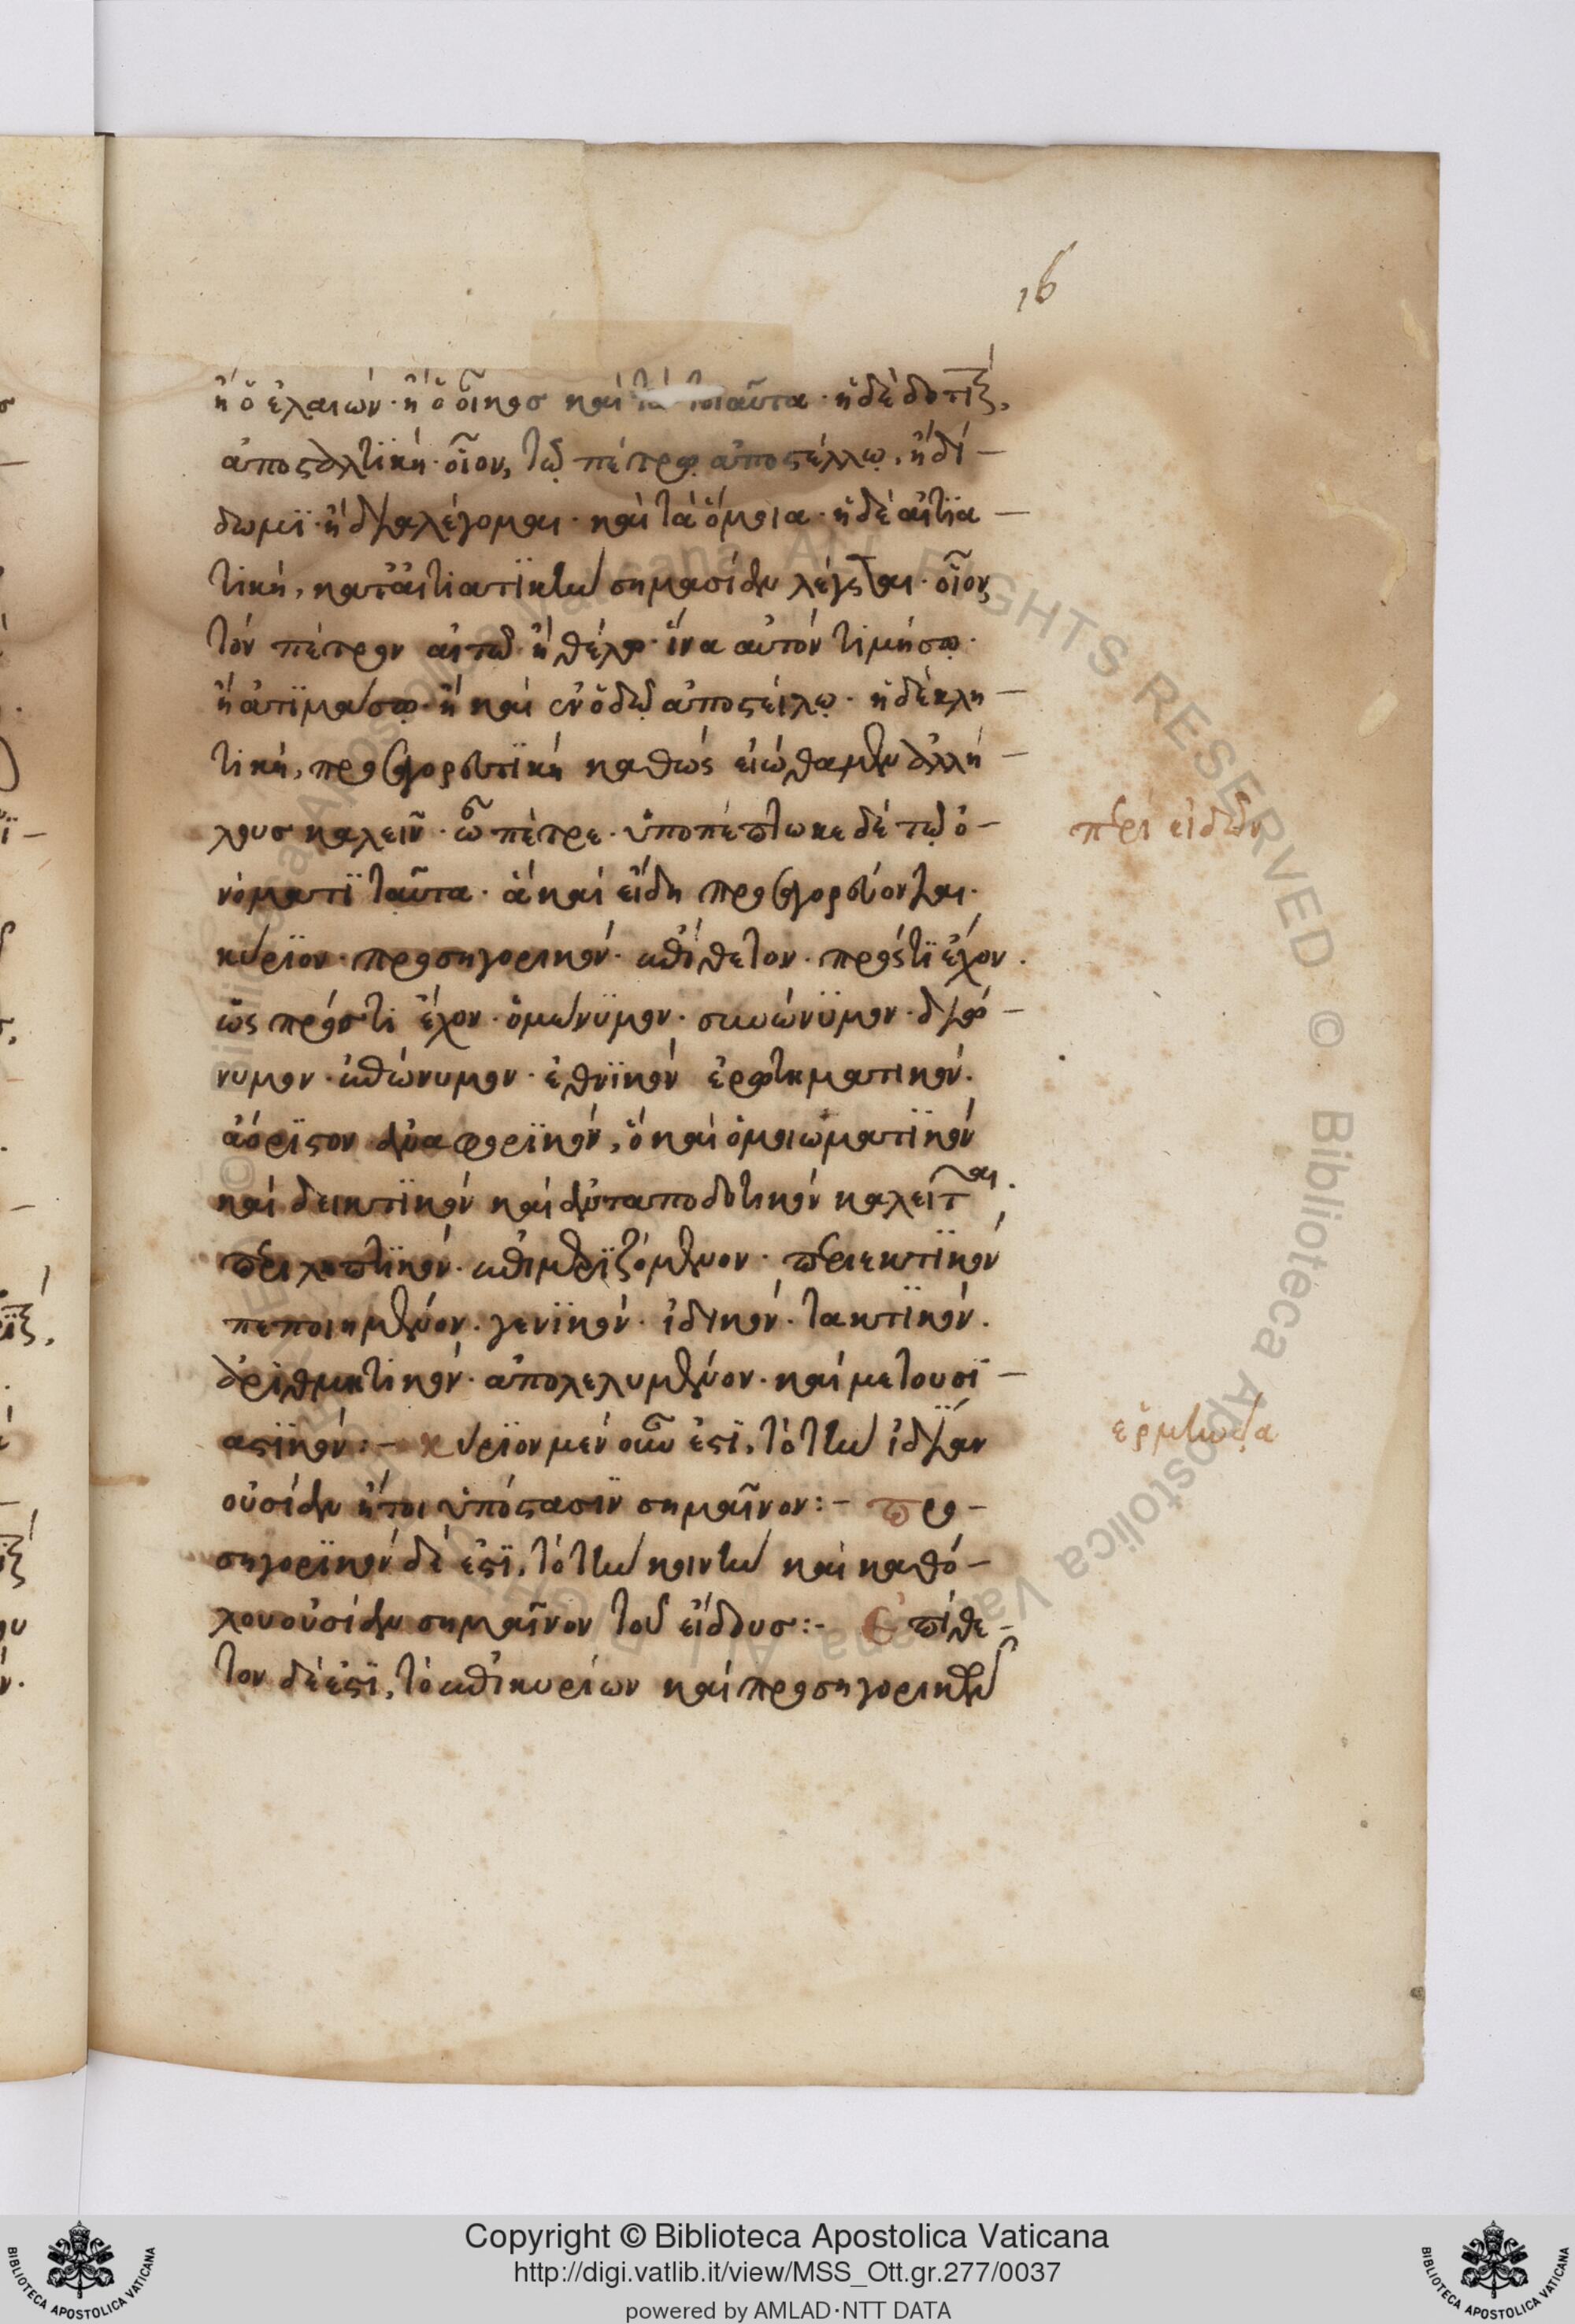 16
ἢ ὁ ἐλαιών· ἢ ὁ οἶκοσ καὶ τὰ τοιαῦτα· ἡ δὲ δοτικὴ,
ἀποσταλτϊκή· οἷον, τῷ πέτρῳ ἀποστέλλω. ἢ δί-
δωμϊ· ἢ διαλέγομαι· καὶ τὰ ὅμοια· ἡ δὲ αἰτϊα-
τικὴ, κατ' αἰτιατϊκὴν σημασίαν λέγεται· οἷον,
τὸν πέτρον αἰτῶ· ἢ θέλω· ἵνα αὐτὸν τιμήσω·
ἢ ἀτϊμάσω· ἢ καὶ ἐν ὁδῷ ἀποστείλω· ἡ δὲ κλη-
τικὴ, προσαγορευτϊκὴ καθὼς εἰώθαμεν ἀλλή-
λουσ καλεῖν· ὦ πέτρε· ὑποπέπτωκε δὲ τῷ ὀ-
περὶ εἰδῶν
νόματϊ ταῦτα· ἃ καὶ εἴδη προσαγορεύονται·
κύρϊον· προσηγορικόν· ἐπίθετον· πρός τϊ ἔχον·
ὡς πρός τι ἔχον· ὁμώνϋμον· συνώνϋμον· διώ-
νυμον· ἐπώνυμον· ἐθνϊκόν ἐρωτηματικόν·
ἀόρϊστον ἀναφορϊκόν, ὃ καὶ ὁμοιωματϊκὸν
καὶ δεικτϊκὸν καὶ ἀνταποδοτικὸν καλεῖται·
περιληπτϊκόν· ἐπιμερϊζόμενον· περιεκτϊκόν
πεποιημένον· γενϊκόν· ἰδικόν· τακτϊκόν·
ἀριθμητικόν· ἀπολελυμένον· καὶ μετουσϊ-
αστϊκόν:- κύριον μὲν οὖν ἐστϊ, τὸ τὴν ἰδίαν
ἑρμηνεία
οὐσίαν ἤτοι ὑπόστασϊν σημαῖνον:- προ-
σηγορϊκὸν δέ ἐστϊ, τὸ τὴν κοινὴν καὶ καθό-
λου οὐσίαν σημαῖνον τοῦ εἴδουσ:- ἐπίθε-
τον δέ ἐστϊ, τὸ ἐπὶ κυρίων καὶ προσηγορικῶν
Copyright © Biblioteca Apostolica Vaticana
http://digi.vatlib.it/view/MSS_Ott.gr.277/0037
powered by AMLAD·NTT DATA